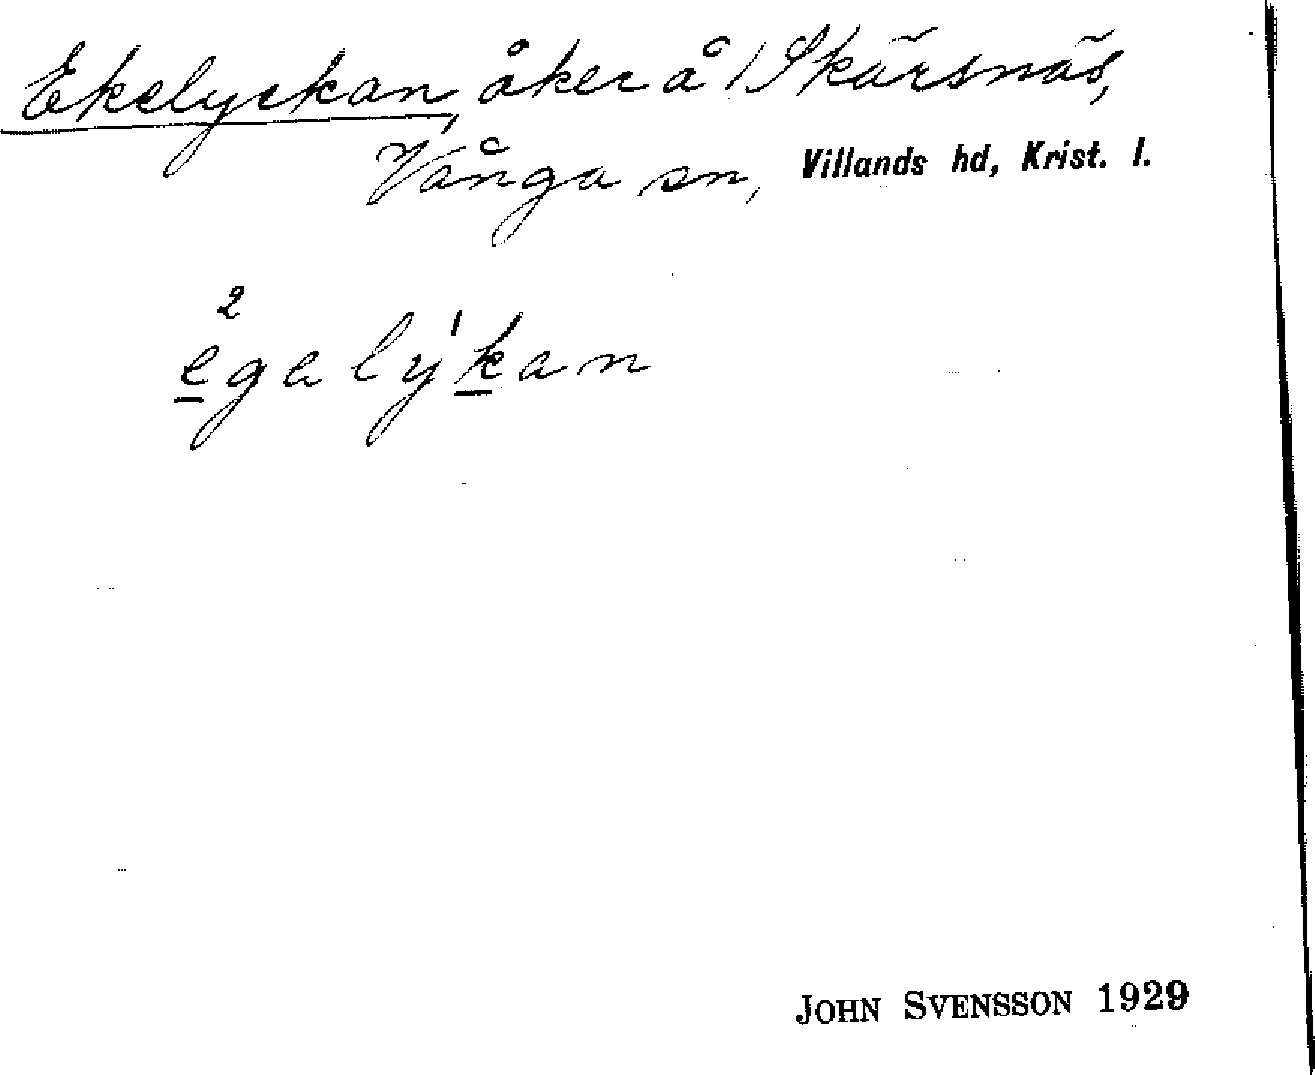 Ekelyckan, åker å 1 Skärsnäs,
Vånga sn, Villands hd, Krist. l.
2
ega lýkan
JOHN SVENSSON 1929